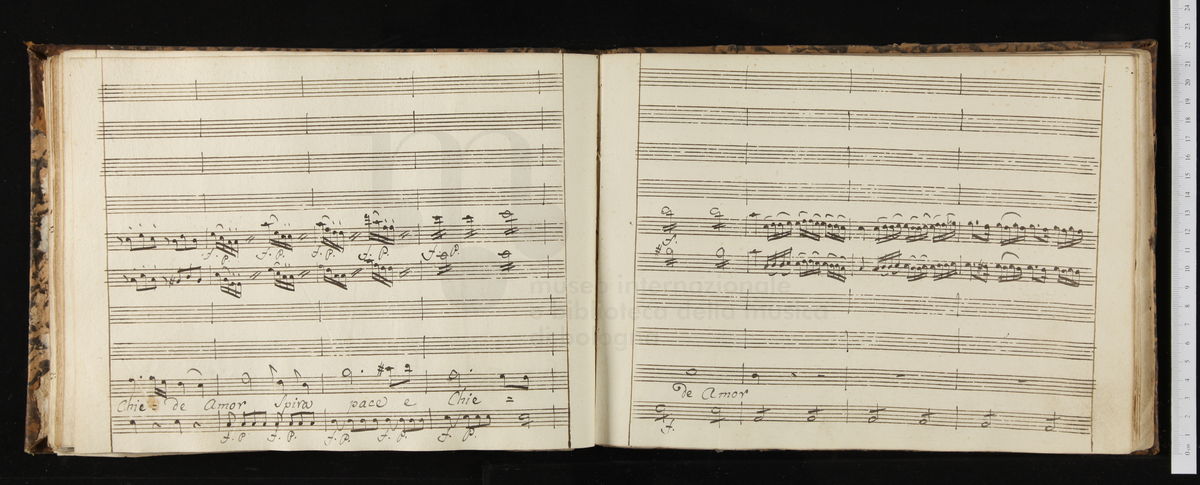 f. P. f. P. f. P. f. P. f. P.
Chie = de Amor Spira pace e Chie =
f. P. f. P. f. P. f. P. f. P.
f.
de Amor
f.
museo internazionale
e biblioteca della musica
di bologna